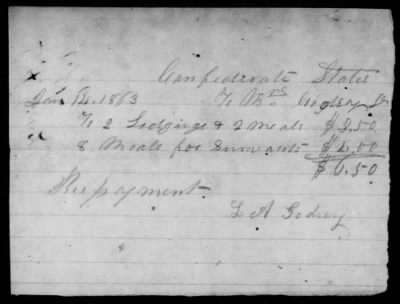 Confederate States
Jan 12. 1863 To Mrs. Godsey Dr
To 2 Lodgings & 2 meals $2.50
8 Meals for Survants $4.00
$6.50
Recpayment
L A Godsey